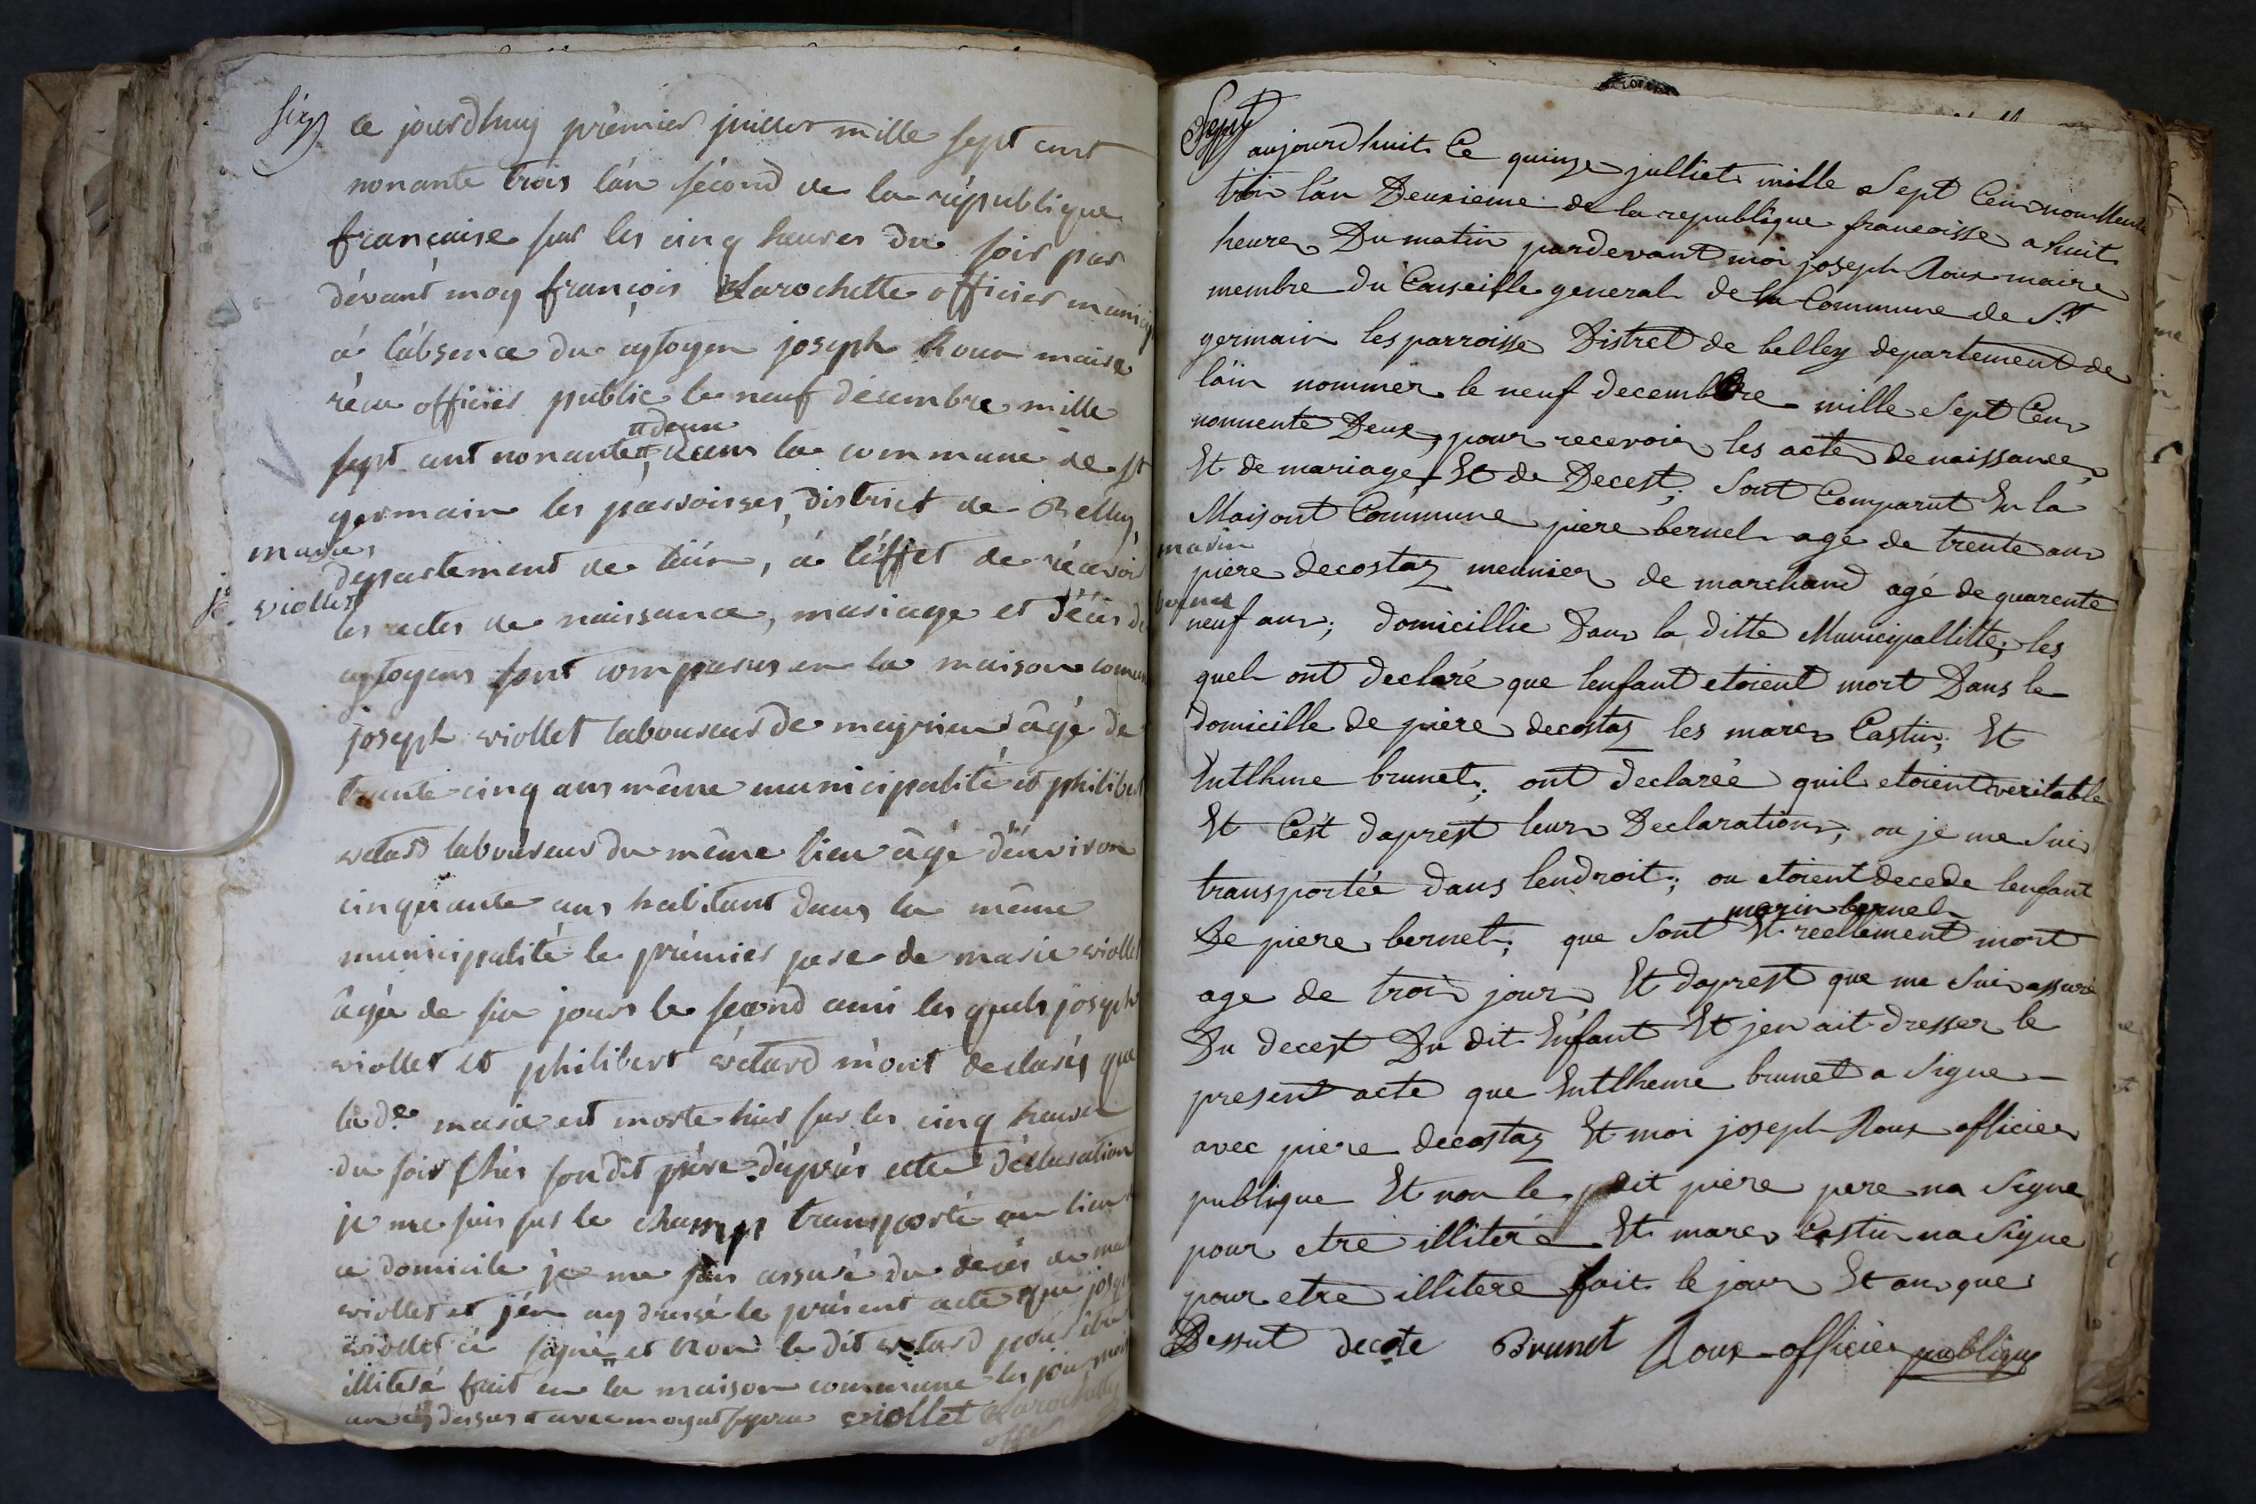 six
ce jourdhuy prémier juillet mille sept cent
nonante trois lán sécond de la république
française sur les cinq heures du soir par
dévant moy françois Larochette officier munici
á lábsence du cytoyen joseph Roux maire
récu officier public le neuf décembre mille
deux
sept cent nonante dans la commune de st
germain les parroisses, district de Belley,
marie
département de láin, á léffet de récevoir
viollet
les actes de naissance, mariage et décès de
cytoyens sont comparus en la maison comune
joseph viollet laboureur de meyrieu âgé de
trante cinq ans même municipalité et philibert
vetard laboureur du même lieu âgé dénviron
cinquante ans habitant dans la même
municipalité le prémier pere de marie viollet
âgée de six jours le second ami les quels joseph
viollet et philibert vetard mónt declarés que
la de marie est morte hier sur les cinq heures
du soir chés son dit père. d'aprés cette déclaration
je me suis sur le champs transporté au lieu
ce domicile je me suis assuré du decés de ma
viollet et jén ay dressé le présent acte que joseph
viollet á signé et non le dit vetard pour être
illiteré fait en la maison commune les jour mois
an cy dessus avec moy viollet Larochette
off
Sept
aujourdhuit Ce quinze julliet mille Sept Cen nonnente
troi lán Deuxieme de la republique francoisse a huit
heure Du matin pardevant moi joseph Roux maire
membre du Conseille general de la Commune de St
germain les parroisse Distret de belley departement de
láin nommer le neuf decembre mille Sept Cen
nonnente Deux, pour recevoir les acte de naissance,
Et de mariage, Et de Decest; Sont Comparut En la
Maisont Commune piere bernel age de trente an
marin
piere decostaz meunier de marchand agé de quarente
bernet
neuf an; domicillie Dans la ditte Municipallitte; les
quel ont declaré que lenfant etoient mort Dans le
domicille de piere decostaz les marc Castin; Et
Entlhme brunet; ont declarée quil etoient veritable
Et Cést daprest leur Declaration; ou je me Sui
transportée dans lendroit; ou etoient decede lenfant
marin bernel
De piere bernet; que Sont Et reellement mort
age de troi jour, Et daprest que me Sui assuré
Du decest Du dit Enfant Et jen ait dresser le
present acte que Entlheme brunet a Signe
avec piere decostaz Et moi joseph Roux officier
publique Et non le dit piere pere na Signe
pour etre illiteré Et marc Castin na Signe
pour etre illitere fait le jour Et an que
Dessut decote Brunet Roux officier publique